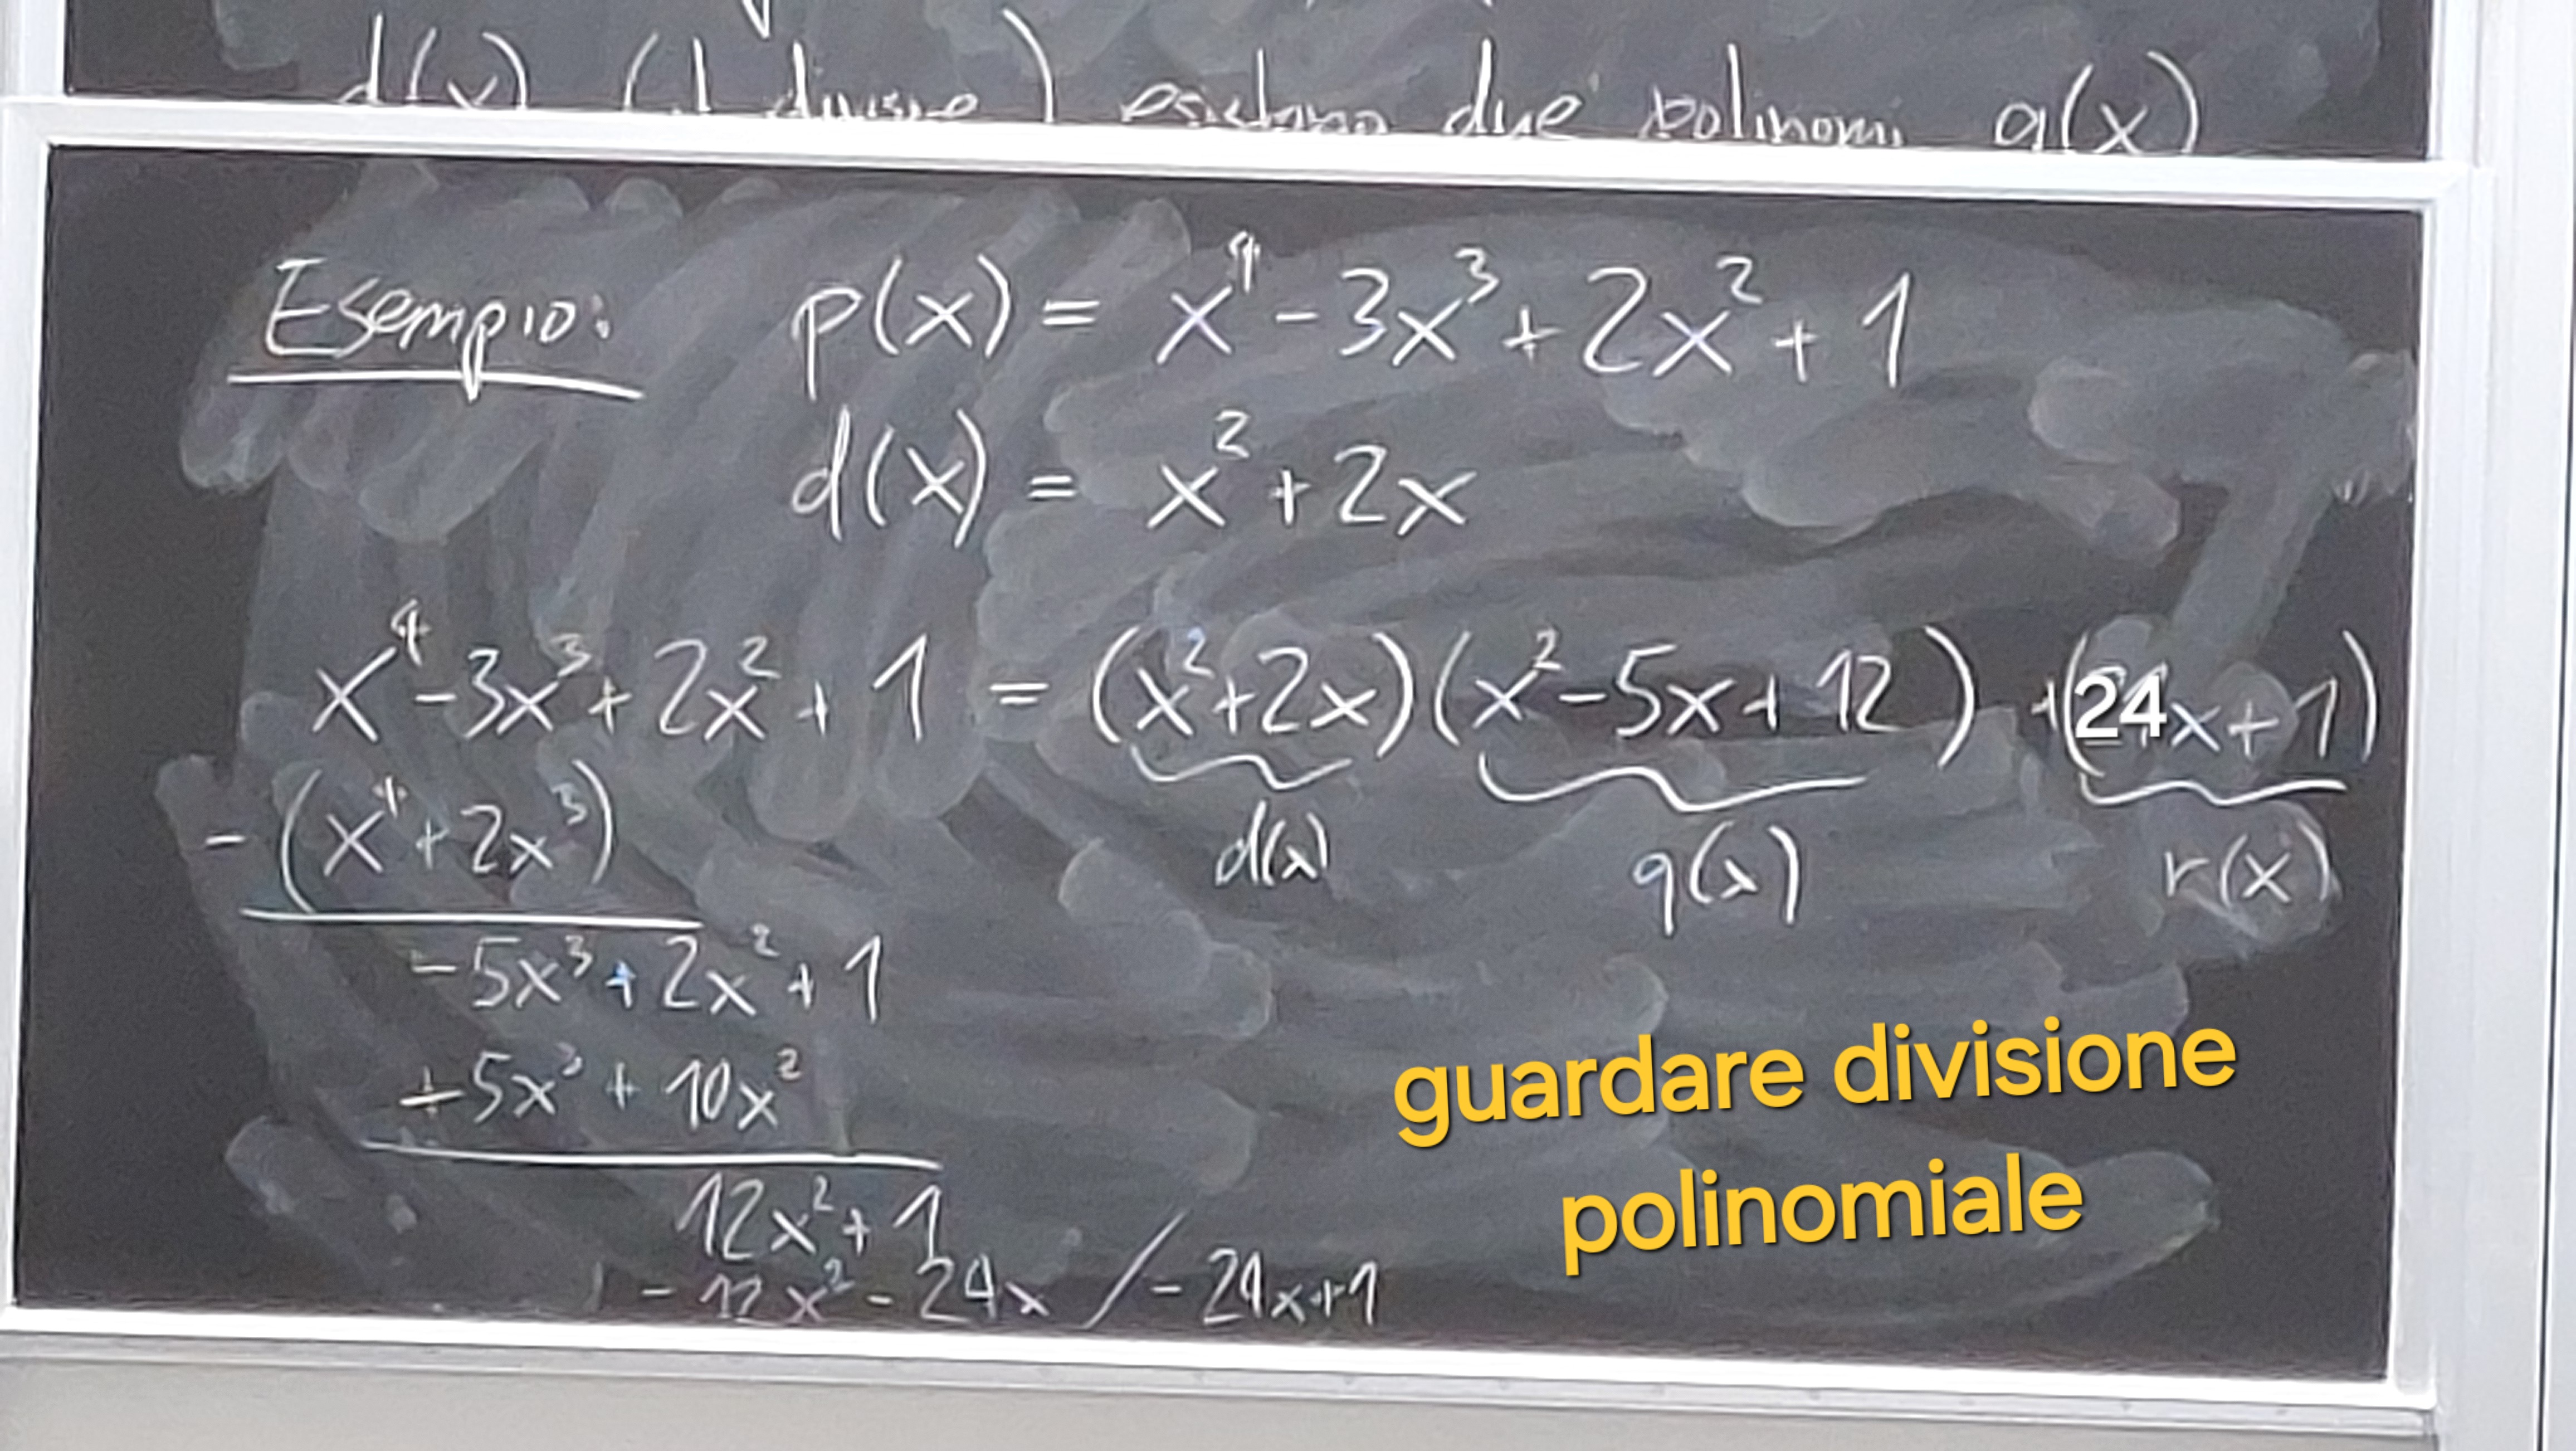 d(x) (il divisore) esistono due polinomi q(x)
Esempio: p(x) = x⁴ - 3x³ + 2x² + 1
d(x) = x² + 2x
x⁴ - 3x³ + 2x² + 1 = (x² + 2x)(x² - 5x + 12) + (24x + 1)
- (x⁴ + 2x³)
d(x) q(x) r(x)
- 5x³ + 2x² + 1
+ 5x³ + 10x²
12x² + 1
- 12x² - 24x / - 24x + 1
guardare divisione
polinomiale